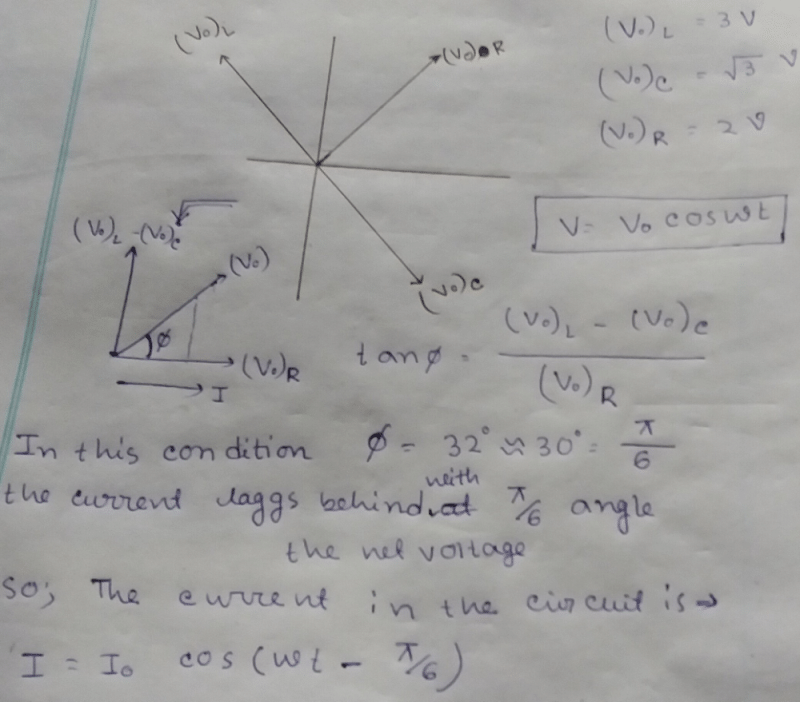 (V₀)L
(V₀)R
(V₀)L = 3V
(V₀)C = √3 V
(V₀)R = 2V
V = V₀ cos wt
(V₀)L - (V₀)C
(V₀)
(V₀)C
ϕ
(V₀)R
I
tanϕ = (V₀)L - (V₀)C / (V₀)R
In this condition ϕ = 32° ≈ 30° = π/6
the current laggs behind with π/6 angle
the net voltage
So; The current in the circuit is →
I = I₀ cos (wt - π/6)